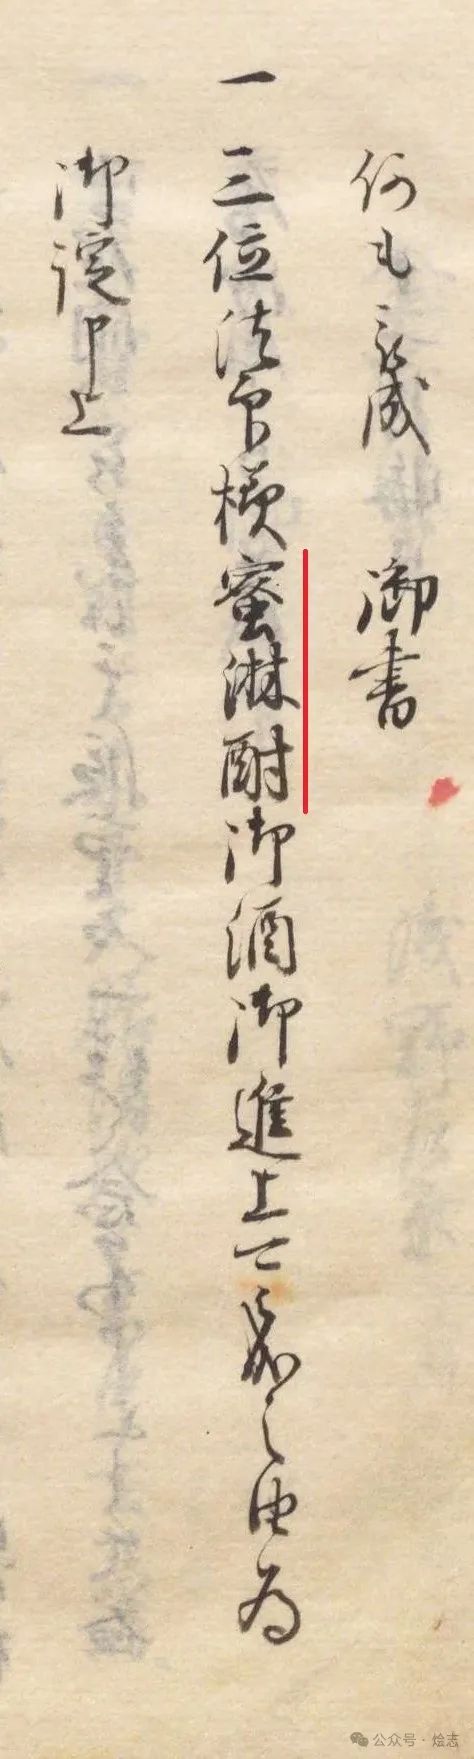 何も被成　御書
一　三位法印様蜜淋酎御酒御進上可被成之由為
御諚申上
公众号·烩志